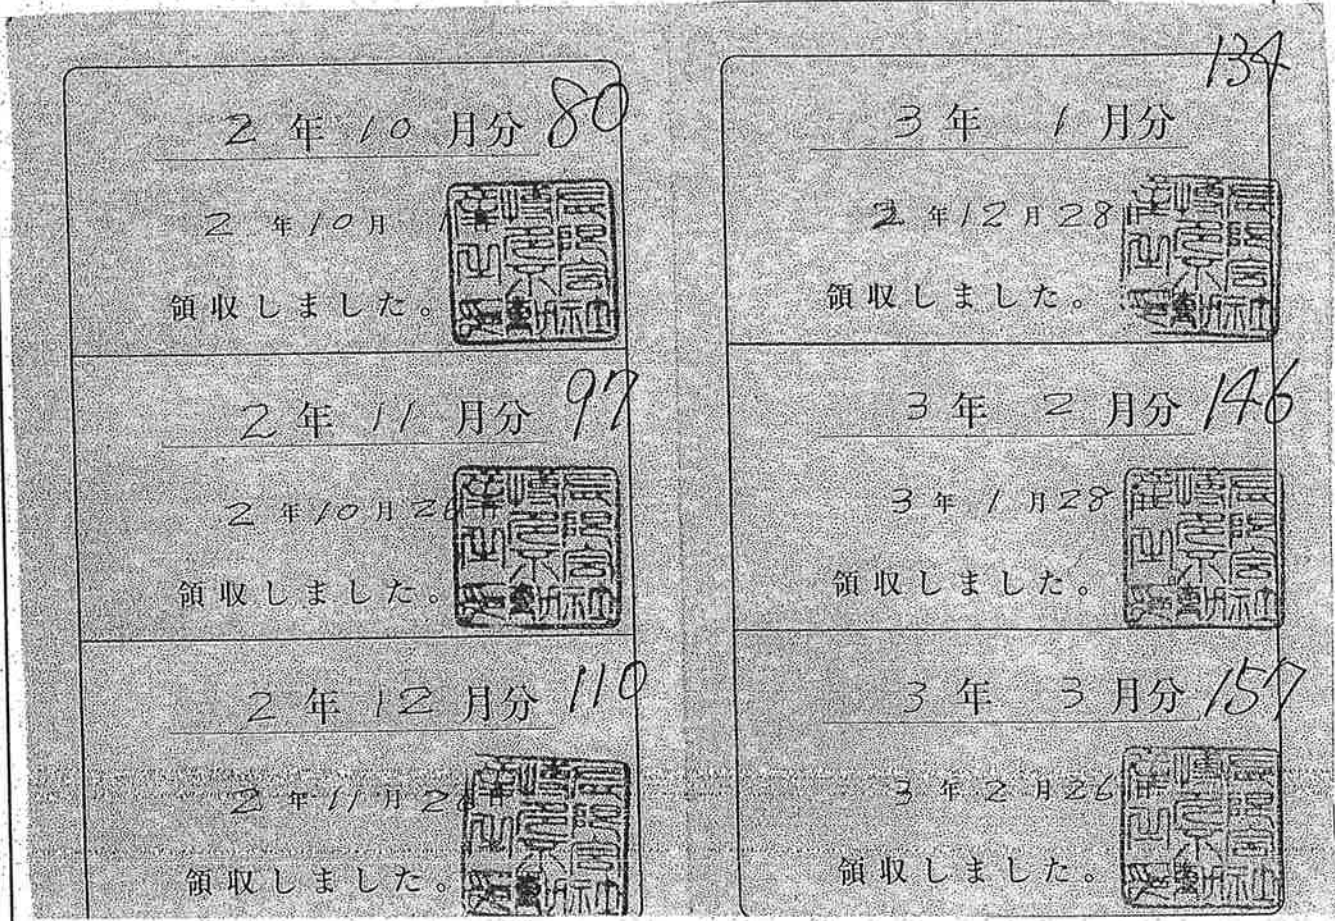 2 年 10 月分 80
2 年 10 月 1
領収しました。
2 年 11 月分 97
2 年 10 月 26
領収しました。
2 年 12 月分 110
2 年 11 月 26
領収しました。
134
3 年 1 月分
2 年 12 月 28
領収しました。
3 年 2 月分 146
3 年 1 月 28
領収しました。
3 年 3 月分 157
3 年 2 月 26
領収しました。